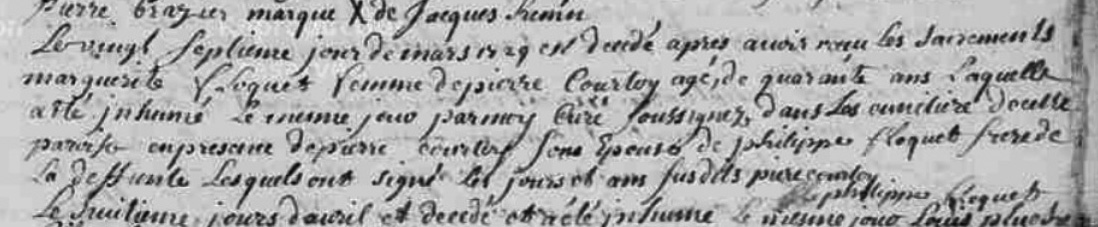 Pierre Brazier marque X de Jacques fremin
Le vingt septieme jour de mars 1729 est decedé apres avoir reçu les Sacrements
marguerite floquet femme de pierre Courtoy agé, de quarante ans Laquelle
a eté jnhumé Le mesme jour par moy Curé soussignez, dans Les cimitiere de cette
paroisse en presence de pierre courtoy sons Epouse de philippe floquet frere de
La deffunte Lesquels ont signé Les jours et ans susdits pierre courtoy
philippe floquet
Le huitieme jours d'avril est decedé et a eté jnhumé Le mesme jour Louis